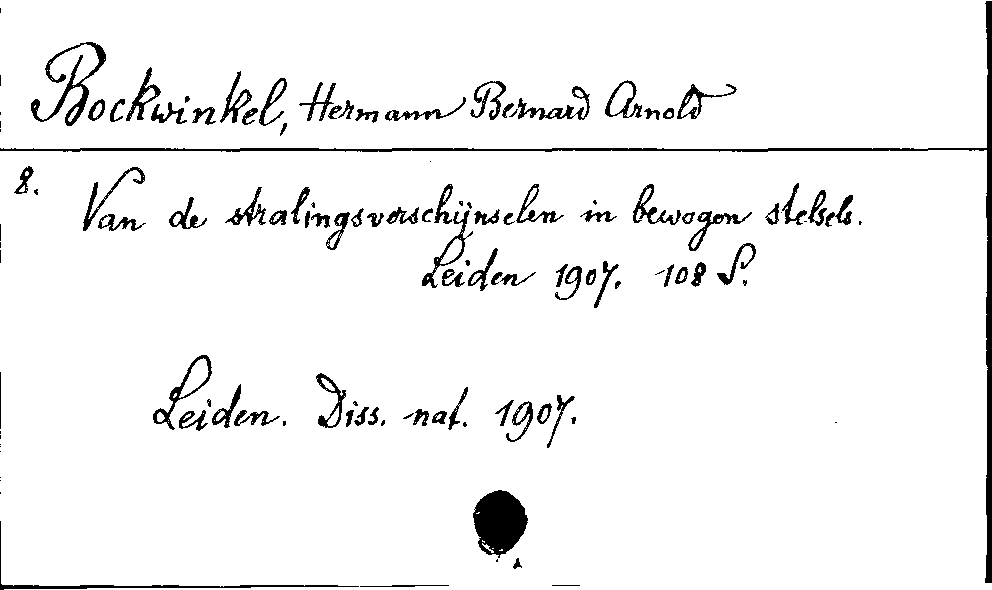 Bockwinkel, Hermann Bernard Arnold
8. Van de stralingsverschijnselen in bewogen stelsels.
Leiden 1907. 108 S.
Leiden. Diss. nat. 1907.